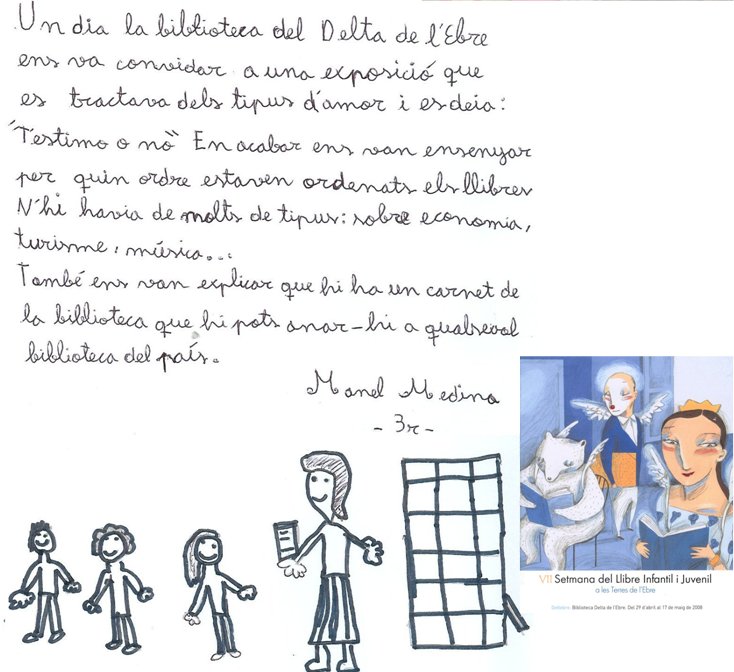 Un dia la biblioteca del Delta de l'Ebre
ens va convidar a una exposició que
es tractava dels tipus d'amor i es deia:
"T'estimo o no" En acabar ens van ensenyar
per quin ordre estaven ordenats els llibres
N'hi havia de molts de tipus: sobre economia,
turisme, música...
També ens van explicar que hi ha un carnet de
la biblioteca que hi pots anar-hi a qualsevol
biblioteca del país.
Manel Medina
-3r-
VII Setmana del Llibre Infantil i Juvenil
a les Terres de l'Ebre
Deltebre. Biblioteca Delta de l'Ebre. Del 29 d'abril al 17 de maig de 2008